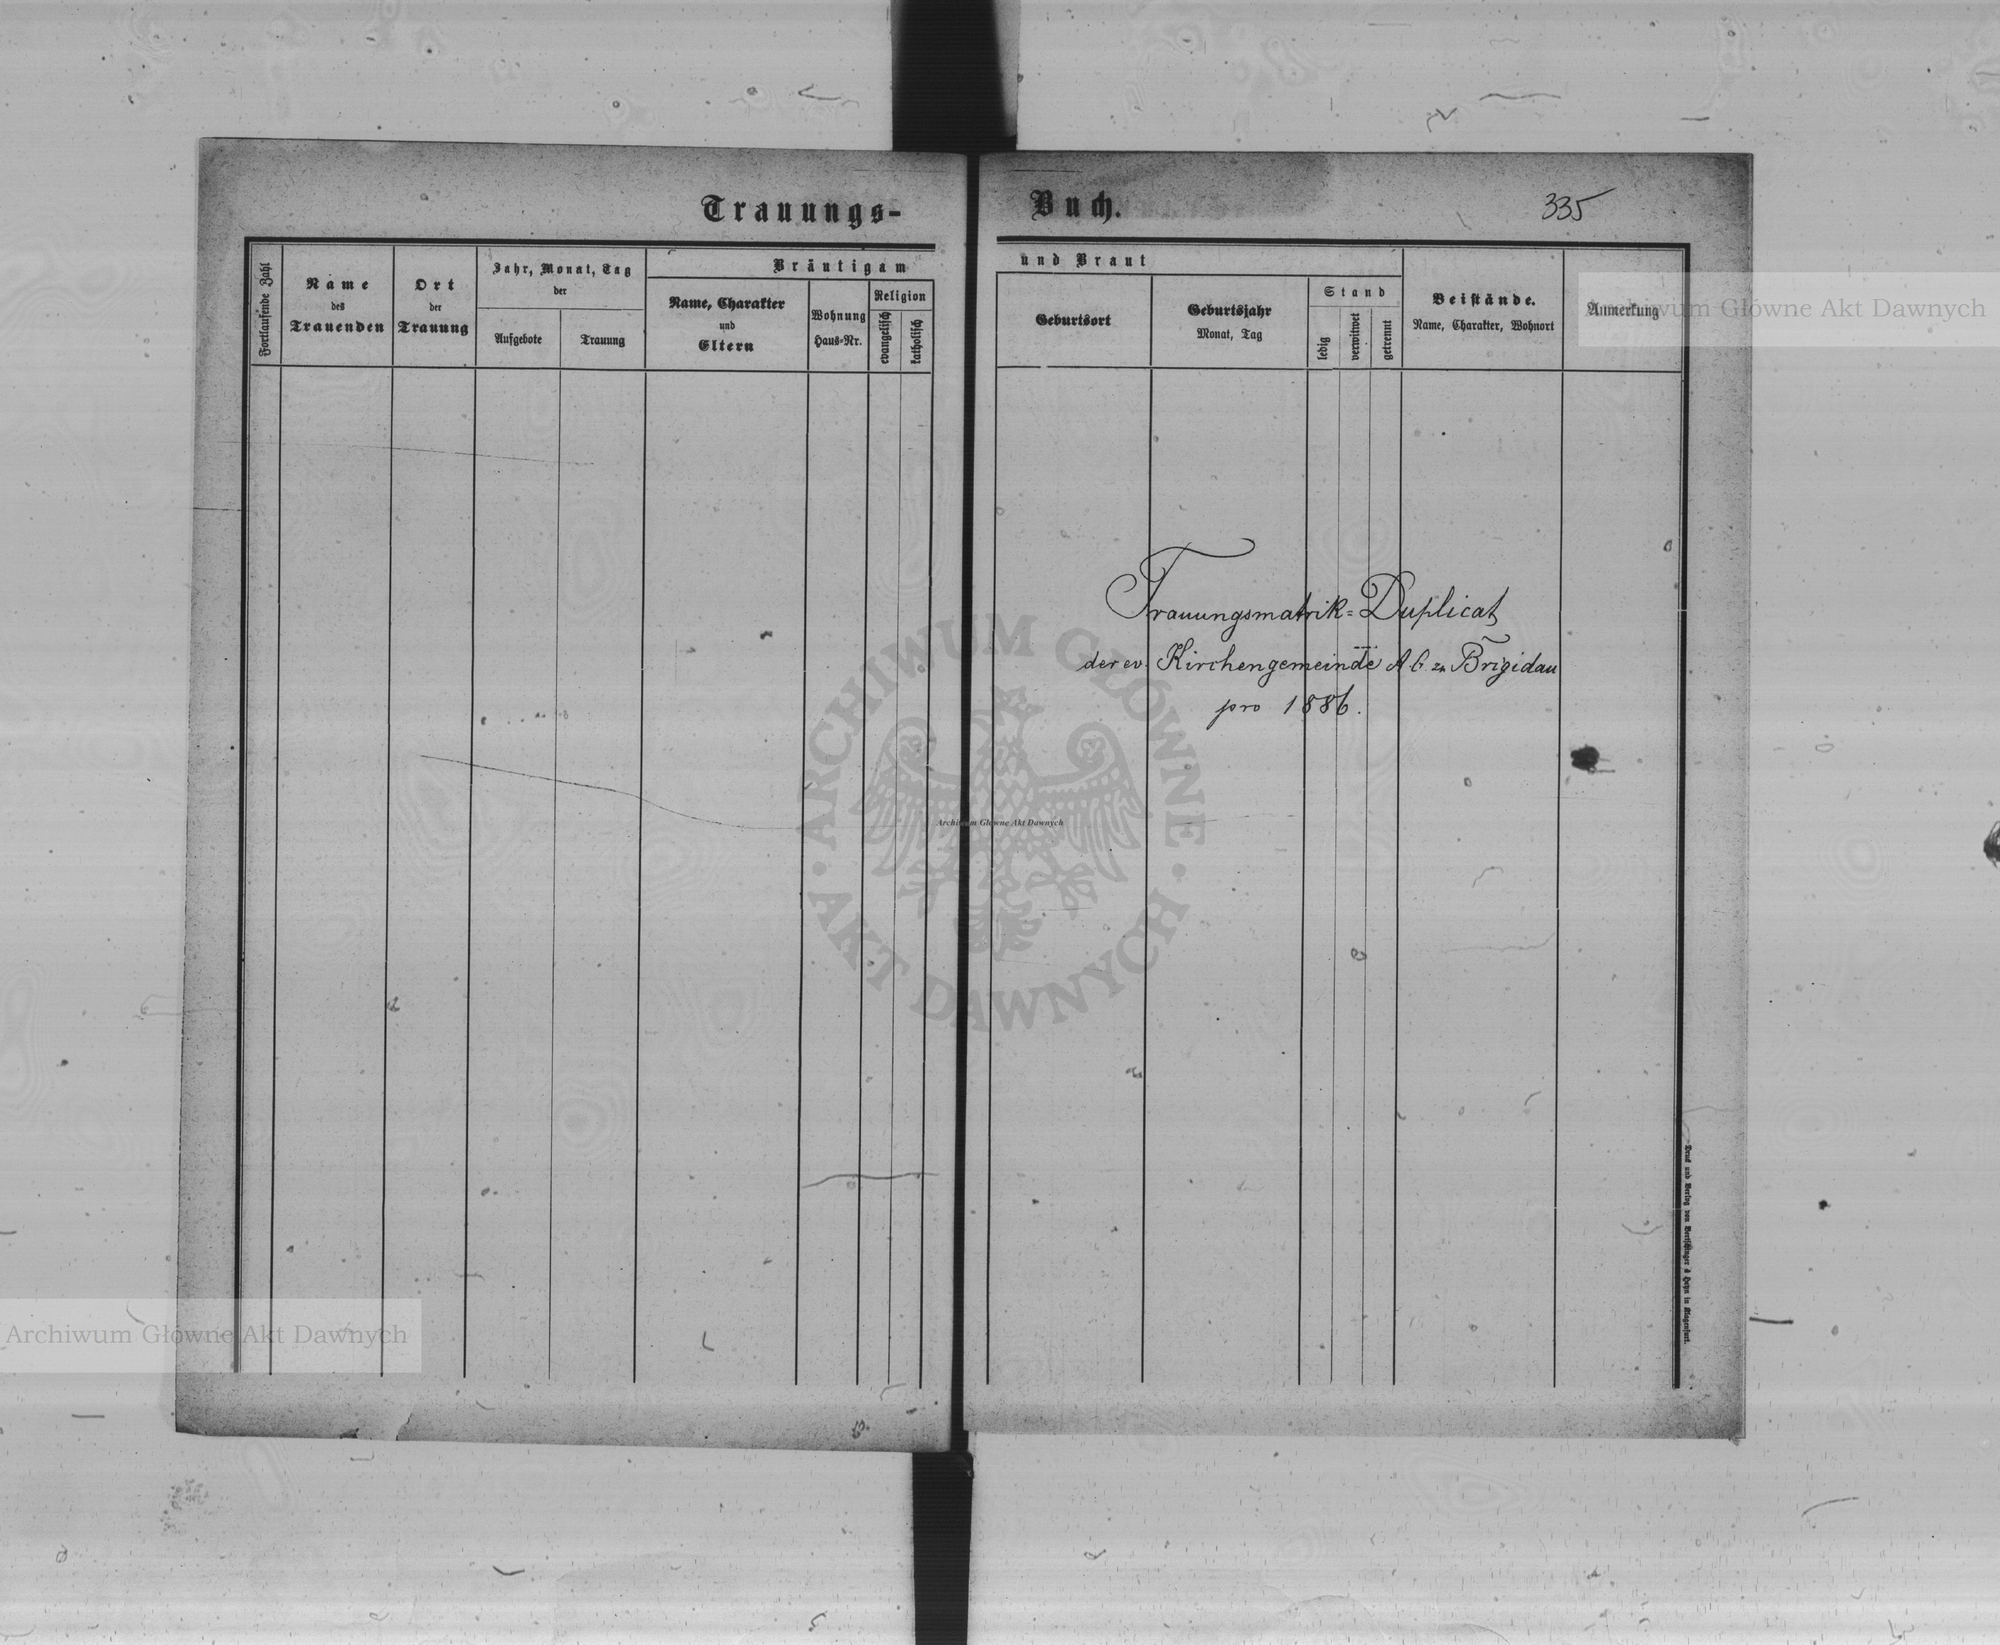 Trauungs-Buch.
335
Fortlaufende Zahl
Name
des
Trauenden
Ort
der
Trauung
Jahr, Monat, Tag
der
Aufgebote
Trauung
Bräutigam und Braut
Name, Charakter
und
Eltern
Wohnung
Haus-Nr.
Religion
evangelisch
katholisch
Geburtsort
Geburtsjahr
Monat, Tag
Stand
ledig
verwitwet
getrennt
Beistände.
Name, Charakter, Wohnort
Anmerkung
Archiwum Główne Akt Dawnych
Trauungsmatrik=Duplicat
der ev. Kirchengemeinde A. C. zu Brigidau
pro 1886.
ARCHIWUM GŁÓWNE
AKT DAWNYCH
Archiwum Główne Akt Dawnych
Druck und Verlag von Bertschinger & Heyn in Klagenfurt.
Archiwum Główne Akt Dawnych